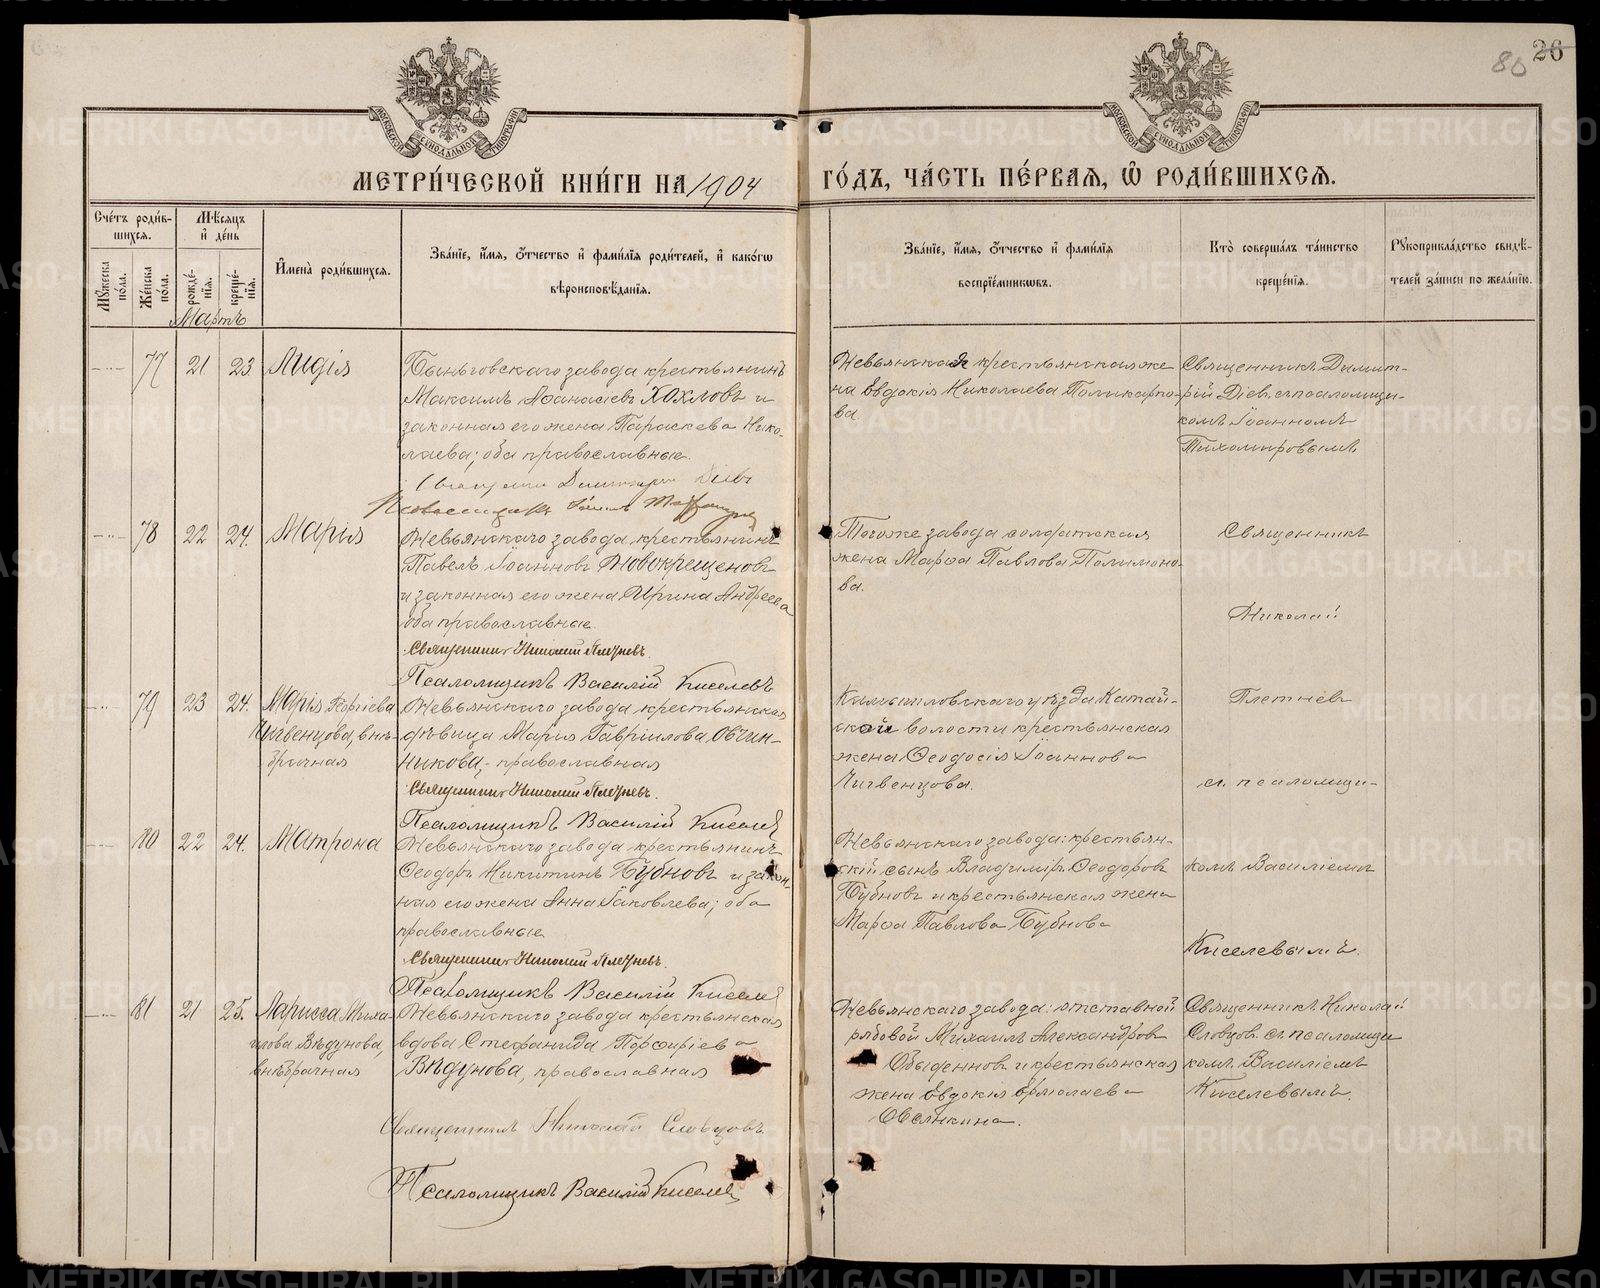 80 26
МОСКОВСКОЙ СѴНОДАЛЬНОЙ ТИПОГРАФІИ
МОСКОВСКОЙ СѴНОДАЛЬНОЙ ТИПОГРАФІИ
МЕТРИ́ЧЕСКОЙ КНИ́ГИ НА 1904 ГО́ДЪ, ЧА́СТЬ ПЕ́РВАѦ, Ѡ҆ РОДИ́ВШИХСѦ.
Сче́тъ роди́в-
шихсѧ.
Мꙋ́жеска по́ла.
Же́нска по́ла.
Мѣ́сѧцъ
и҆ де́нь
рожде́-
нїѧ.
креще́-
нїѧ.
Мартъ
И҆мена̀ роди́вшихсѧ.
Зва́нїе, и҆́мѧ, ѻ҆́тчество и҆ фами́лїѧ роди́телей, и҆ како́гѡ
вѣроисповѣ́данїѧ.
Зва́нїе, и҆́мѧ, ѻ҆́тчество и҆ фами́лїѧ
воспрїе́мникѡвъ.
Кто̀ соверша́лъ та́инство
креще́нїѧ.
Рꙋкоприкла́дство свидѣ́-
телей за́писи по жела́нїю.
77 21 23 Лидія
Быньговскаго завода крестьянинъ
Максимъ Аѳанасіевъ Хохловъ и
законная его жена Параскева Нико-
лаева; оба православные.
Священникъ Димитрій Діевъ
Псаломщикъ Іоаннъ Тихомировъ
Невьянская крестьянская же
на Евдокія Николаева Поликарпо-
ва
Священникъ Димит-
рій Діевъ съ псаломщи-
комъ Іоанномъ
Тихомировымъ
78 22 24. Марія
Невьянскаго завода, крестьянинъ
Павелъ Іоанновъ Новокрещеновъ
и законная его жена Ирина Андреева
оба православные.
Священникъ Николай Плетневъ.
Псаломщикъ Василій Киселевъ
Тогоже завода солдатская
жена Марѳа Павлова Полимоно-
ва.
Священникъ
Николай
79 23 24. Марія Георгіева
Чигвенцова, внѣ-
брачная
Невьянскаго завода, крестьянская
дѣвица Марія Гавріилова Овчин-
никова, православная
Священникъ Николай Плетневъ.
Псаломщикъ Василій Киселевъ
Камышловскаго уѣзда Катай-
ской волости крестьянская
жена Ѳеодосія Іоаннова
Чигвенцова.
Плетневъ
съ псаломщи-
80 22 24. Матрона
Невьянскаго завода крестьянинъ
Ѳеодоръ Никитинъ Бубновъ и закон-
ная его жена Анна Іаковлева; оба
православные
Священникъ Николай Плетневъ.
Псаломщикъ Василій Киселевъ
Невьянскаго завода: крестьян-
скій сынъ Владиміръ Ѳеодоровъ
Бубновъ и крестьянская жена
Марѳа Павлова Бубнова
комъ Василіемъ
Киселевымъ.
81 21 25. Ларисса Миха-
илова Вѣдунова,
внѣбрачная
Невьянскаго завода крестьянская
вдова Стефанида Порфиріева
Вѣдунова, православная
Священникъ Николай Словцовъ.
Псаломщикъ Василій Киселевъ
Невьянскаго завода: отставной
рядовой Михаилъ Александровъ
Обыденновъ и крестьянская
жена Евдокія Ермолаева
Овсянкина.
Священникъ Николай
Словцовъ съ псаломщи
комъ Василіемъ
Киселевымъ.
METRIKI.GASO-URAL.RU